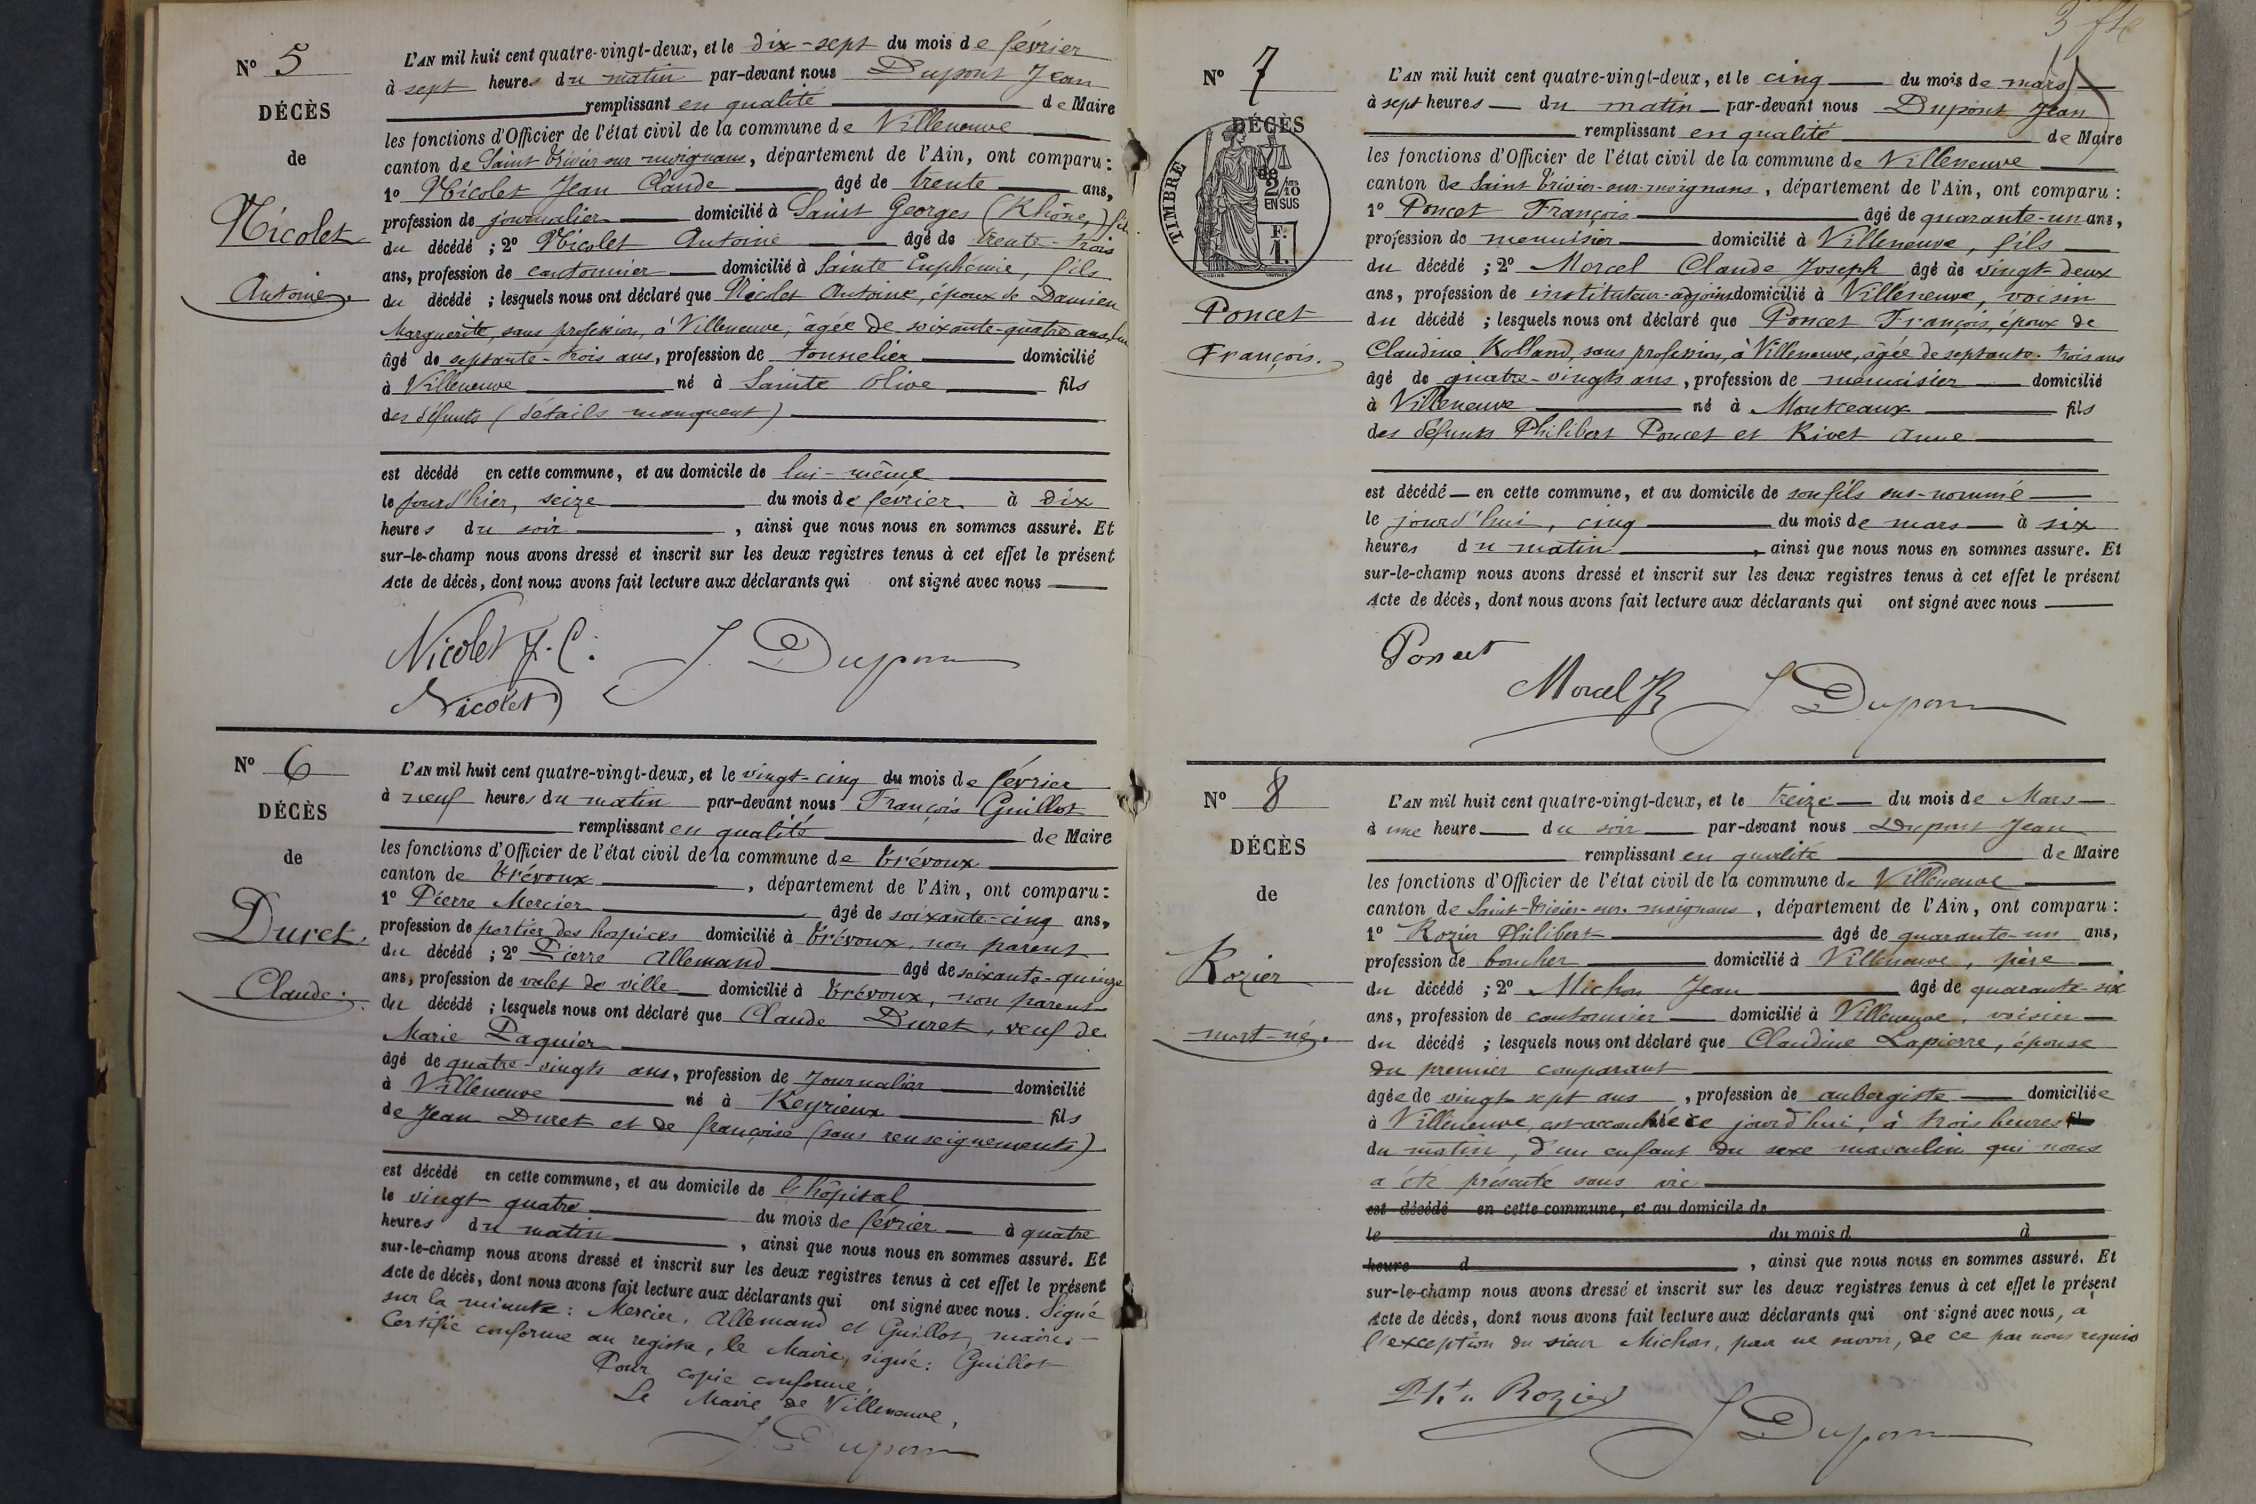 Nº 5
DÉCÈS
de
Nicolet
Antoine.
L'AN mil huit cent quatre-vingt-deux, et le dix-sept du mois de février
à sept heures du matin par-devant nous Dupont Jean
remplissant en qualité de Maire
les fonctions d'Officier de l'état civil de la commune de Villeneuve
canton de Saint Trivier sur moignans, département de l'Ain, ont comparu :
1º Nicolet Jean Claude âgé de trente ans,
profession de journalier domicilié à Saint Georges (Rhône) fils
du décédé ; 2º Nicolet Antoine âgé de trente-trois
ans, profession de cantonnier domicilié à Sainte Euphémie, fils
du décédé ; lesquels nous ont déclaré que Nicolet Antoine, époux de Damien
Marguerite, sans profession, à Villeneuve, âgée de soixante-quatre ans, lui
âgé de septante-trois ans, profession de tonnelier domicilié
à Villeneuve né à Sainte Olive fils
des défunts (détails manquent)
est décédé en cette commune, et au domicile de lui-même
le jourd'hier, seize du mois de février à dix
heures du soir, ainsi que nous nous en sommes assuré. Et
sur-le-champ nous avons dressé et inscrit sur les deux registres tenus à cet effet le présent
Acte de décès, dont nous avons fait lecture aux déclarants qui ont signé avec nous
Nicolet J. C. J Dupont
Nicolet
Nº 6
DÉCÈS
de
Duret,
Claude.
L'AN mil huit cent quatre-vingt-deux, et le vingt-cinq du mois de février
à neuf heures du matin par-devant nous François Guillot
remplissant en qualité de Maire
les fonctions d'Officier de l'état civil de la commune de Trévoux
canton de Trévoux, département de l'Ain, ont comparu :
1º Pierre Mercier âgé de soixante-cinq ans,
profession de portier des hospices domicilié à Trévoux, non parent
du décédé ; 2º Pierre Allemand âgé de soixante-quinze
ans, profession de valet de ville domicilié à Trévoux, non parent
du décédé ; lesquels nous ont déclaré que Claude Duret, veuf de
Marie Paquier
âgé de quatre-vingts ans, profession de Journalier domicilié
à Villeneuve né à Reyrieux fils
de Jean Duret et de françoise (sans renseignements)
est décédé en cette commune, et au domicile de l'hôpital
le vingt quatre du mois de février à quatre
heures du matin, ainsi que nous nous en sommes assuré. Et
sur-le-champ nous avons dressé et inscrit sur les deux registres tenus à cet effet le présent
Acte de décès, dont nous avons fait lecture aux déclarants qui ont signé avec nous. Signé
sur la minute : Mercier, Allemand et Guillot, maire.
Certifié conforme au registre, le Maire, signé : Guillot
Pour copie conforme,
Le Maire de Villeneuve,
J Dupont
3 fte
Nº 7
DÉCÈS
de
TIMBRE
2/10
EN SUS
F.
1.
Poncet
François.
L'AN mil huit cent quatre-vingt-deux, et le cinq du mois de mars
à sept heures du matin par-devant nous Dupont Jean
remplissant en qualité de Maire
les fonctions d'Officier de l'état civil de la commune de Villeneuve
canton de Saint Trivier-sur-moignans, département de l'Ain, ont comparu :
1º Poncet François âgé de quarante-un ans,
profession de menuisier domicilié à Villeneuve, fils
du décédé ; 2º Morcel Claude Joseph âgé de vingt-deux
ans, profession de instituteur-adjoint domicilié à Villeneuve, voisin
du décédé ; lesquels nous ont déclaré que Poncet François, époux de
Claudine Rolland, sans profession, à Villeneuve, âgée de septante-trois ans
âgé de quatre-vingts ans, profession de menuisier domicilié
à Villeneuve né à Montceaux fils
des défunts Philibert Poncet et Rivet Anne
est décédé en cette commune, et au domicile de son fils sus-nommé
le jourd'hui, cinq du mois de mars à six
heures du matin, ainsi que nous nous en sommes assuré. Et
sur-le-champ nous avons dressé et inscrit sur les deux registres tenus à cet effet le présent
Acte de décès, dont nous avons fait lecture aux déclarants qui ont signé avec nous
Poncet
Morcel J Dupont
Nº 8
DÉCÈS
de
Rozier
mort-né.
L'AN mil huit cent quatre-vingt-deux, et le treize du mois de Mars
à une heure du soir par-devant nous Dupont Jean
remplissant en qualité de Maire
les fonctions d'Officier de l'état civil de la commune de Villeneuve
canton de Saint-Trivier-sur-moignans, département de l'Ain, ont comparu :
1º Rozier Philibert âgé de quarante-un ans,
profession de boucher domicilié à Villeneuve, père
du décédé ; 2º Michon Jean âgé de quarante-six
ans, profession de cantonnier domicilié à Villeneuve, voisin
du décédé ; lesquels nous ont déclaré que Claudine Lapierre, épouse
du premier comparant
âgée de vingt sept ans, profession de aubergiste domiciliée
à Villeneuve, est accouchée ce jourd'hui, à trois heures fils
du matin, d'un enfant du sexe masculin qui nous
a été présenté sans vie
est décédé en cette commune, et au domicile de
le du mois d à
heure d, ainsi que nous nous en sommes assuré. Et
sur-le-champ nous avons dressé et inscrit sur les deux registres tenus à cet effet le présent
Acte de décès, dont nous avons fait lecture aux déclarants qui ont signé avec nous, à
l'exception du sieur Michon, pour ne savoir, de ce par nous requis
Pht. Rozier J Dupont